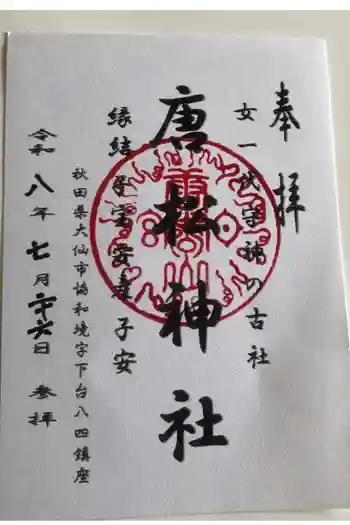 奉拝
女一代守護の古社
唐松神社
縁結 子宝 安産 子安
秋田県大仙市協和境字下台八四鎮座
令和八年七月廿六日 参拝